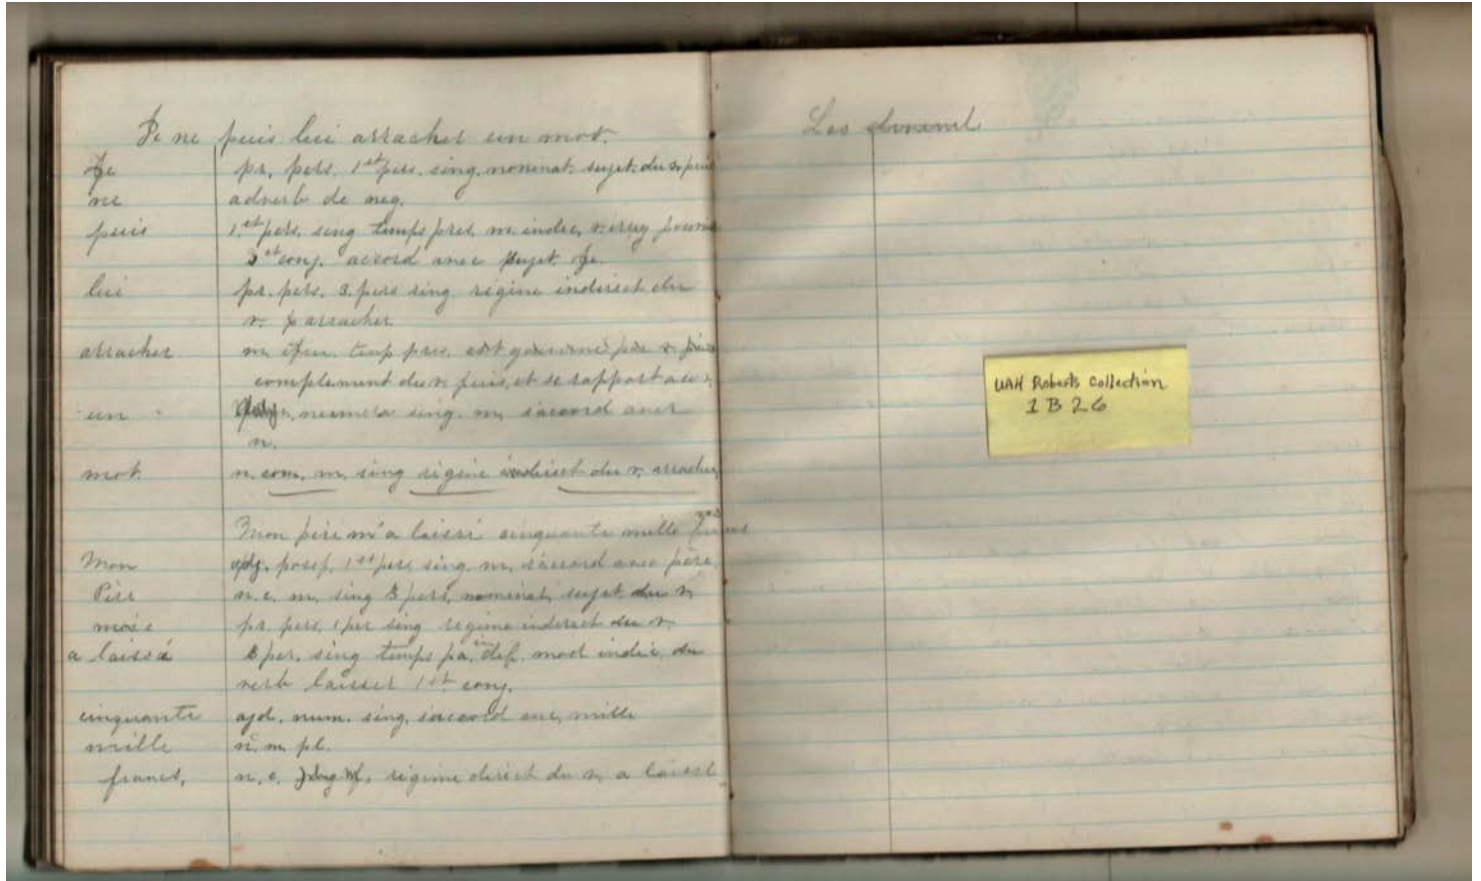 Je ne puis lui arracher un mot.
Je pr. pers. 1st pers. sing. nominat. sujet du v. puis
ne adverb de neg.
puis 1.st pers. sing temps pres. m. indic, v. irreg
3 conj. accord avec sujet Je.
lui pr. pers. 3. pers sing régime indirect du
v. arracher
arracher temp pres. est par v. puis
complement du v. puis, et se rapport au v.
un sing. m. s'accord avec
n.
mot. n. com. m. sing régime indirect du v. arracher,
Mon père m'a laissé cinquante mille francs
Mon adj. possp. 1st pers. sing. m. s'accord avec père
Père n. c. m. sing 3 pers. nominat, sujet du v.
pr. pers. 1 per sing régime indirect du v.
a laissé 3 per. sing temps pa. indef. mod indic. du
verb laisser 1st conj.
cinquante ajd. num. sing. s'accord mille
mille n. m. pl.
francs. n. c. régime direct du v. a laissé
Les
UAH Roberts Collection
1 B 26